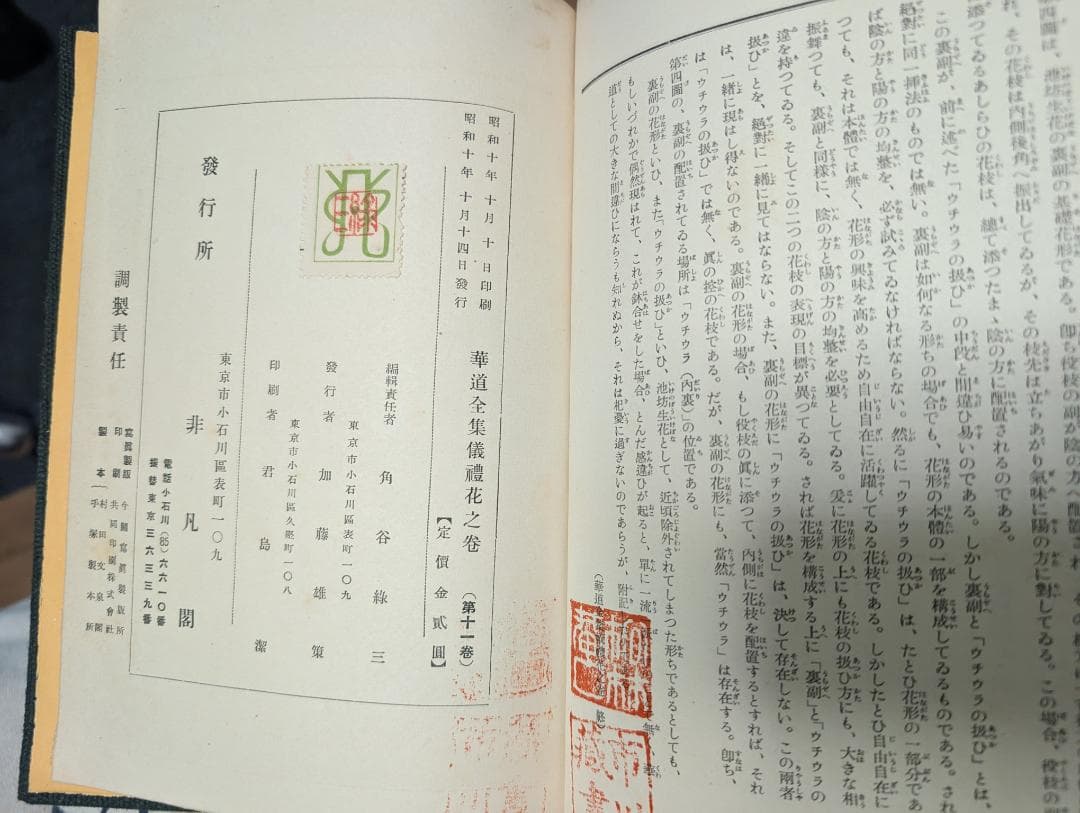 第四圖は、池坊生花の裏副の基礎花形である。卽ち役枝の副が陰の方へ配置され、その
れ、その花枝は内側後角へ振出してゐるが、その枝先は立ちあがり氣味に陽の方に對してゐる。この場合、役枝の副
に添つてゐるあしらひの花枝は、總て添つたまゝ陰の方に配置されるのである。
この裏副が、前に述べた「ウチウラの扱ひ」の中段と間違ひ易いのである。しかし裏副と「ウチウラの扱ひ」とは、
絕對に同一揷法のものでは無い。裏副は如何なる形ちの場合でも、花形の本體の一部を構成してゐるものである。され
ば陰の方と陽の方の均整を、必ず試みてゐなければならない。然るに「ウチウラの扱ひ」は、たとひ花形の一部分であ
つても、それは本體では無く、花形の興味を高めるため自由自在に活躍してゐる花枝である。しかしたとひ自由自在に
振舞つても、裏副と同樣に、陰の方と陽の方の均整を必要としてゐる。爰に花形の上にも花枝の扱ひ方にも、大きな相
違を持つてゐる。そしてこの二つの花枝の表現の目標が異つてゐる。されば花形を構成する上に「裏副」と「ウチウラの
扱ひ」とを、絕對に一緖に見てはならない。また、裏副の花形に「ウチウラの扱ひ」は、決して存在しない。この兩者
は、一緖に現はし得ないのである。裏副の花形の場合、もし役枝の眞に添つて、内側に花枝を配置するとすれば、それ
は「ウチウラの扱ひ」では無く、眞の控の花枝である。だが、裏副の花形にも、當然「ウチウラ」は存在する。卽ち、
第四圖の、裏副の配置されてゐる場所は「ウチウラ（内裏）の位置である。
裏副の花形といひ、また「ウチウラの扱ひ」といひ、池坊生花として、近頃除外されてしまつた形ちであるとしても、
もしいづれかで偶然現はれて、これが鉢合せをした場合、とんだ感違ひが起ると、單に一流
道としての大きな間違ひにならうも知れぬから、それは杞憂に過ぎないのであらうが、附記
昭和十年十月十日印刷
昭和十年十月十四日發行
華道全集儀禮花之卷（第十一卷）
【定價金貳圓】
編輯責任者 角谷綠三
東京市小石川區表町一〇九
發行者 加藤雄策
東京市小石川區久堅町一〇八
印刷者 君島潔
東京市小石川區表町一〇九
發行所 非凡閣
電話小石川(85)六六一〇番
振替東京三六三三九番
調製責任
寫眞製版 今關寫眞製版所
印刷 共同印刷株式會社
製本 村田文泉閣
手塚製本所